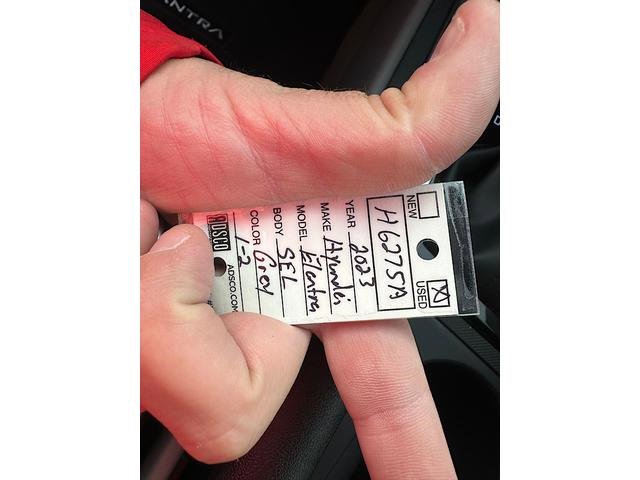 ANTRA
NEW
USED
H6275A
YEAR 2023
MAKE Hyundai
MODEL Elantra
BODY SEL
COLOR Grey
1-2
ADSCO ADSCO.COM